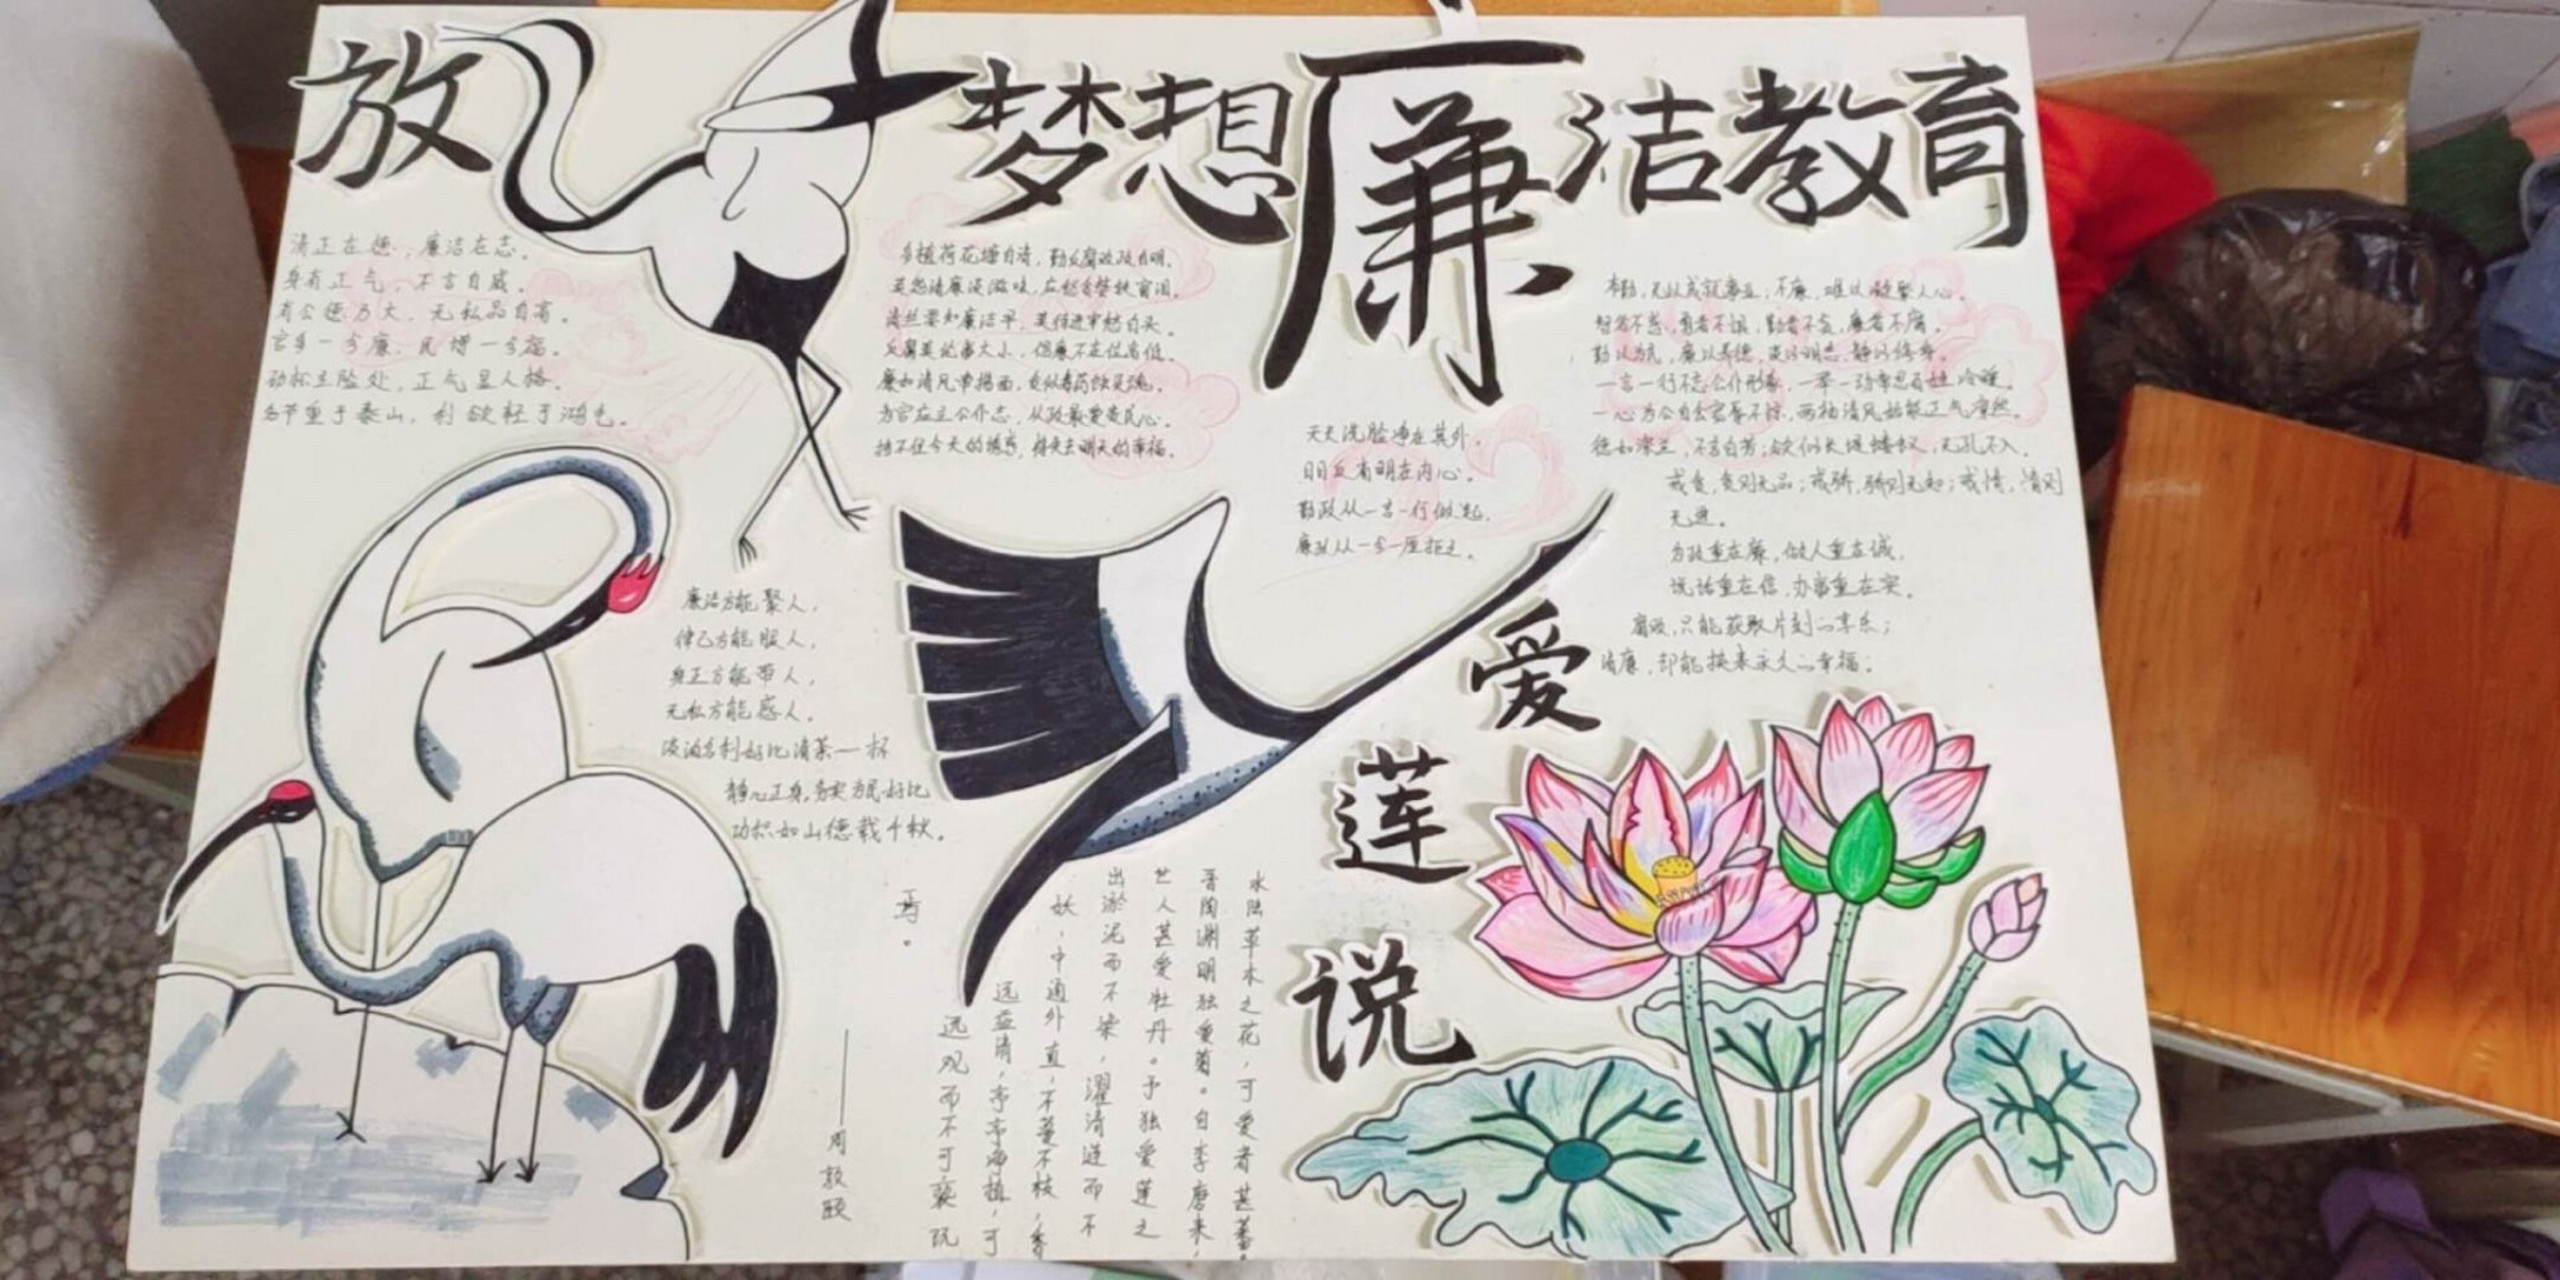 放 梦想 廉洁教育
清正在德，廉洁在志。
身有正气，不言自威。
有公德乃大，无私品自高。
官多一分廉，民增一分福。
劲松立险处，正气显人格。
名节重于泰山，利欲轻于鸿毛。
多植荷花塘自清，勤反腐败政自明。
莫怨清廉淡滋味，应愁含禁铁窗泪。
清丝要如廉洁早，莫待进牢愁白头。
反腐莫论事大小，倡廉不在位高低。
廉如清风常拂面，贪似毒药蚀灵魂。
为官应立公仆志，从政最要贵民心。
挡不住今天的诱惑，将失去明天的幸福。
天天洗脸净在其外，
日日反省明在内心。
勤政从一言一行做起，
廉政从一分一厘拒之。
不勤，无以成就事业；不廉，难以凝聚人心。
智者不惑，勇者不惧，勤者不贪，廉者不腐。
勤以为民，廉以养德，淡以明志，静以修身。
一言一行不忘公仆形象，一举一动常思百姓冷暖。
一心为公自会宠辱不惊，两袖清风始能正气凛然。
德如深兰，不言自芳；欲似长堤蝼蚁，无孔不入。
戒贪，贪则无品；戒骄，骄则无知；戒惰，惰则
无进。
为政重在廉，做人重在诚，
说话重在信，办事重在实。
腐败，只能获取片刻的享乐；
清廉，却能换来永久的幸福。
廉洁方能聚人，
律己方能服人，
身正方能带人，
无私方能感人。
淡泊名利好比清茶一杯
静心正身，务实为民好比
功积如山德载千秋。
爱莲说
水陆草木之花，可爱者甚蕃。
晋陶渊明独爱菊。自李唐来，
世人甚爱牡丹。予独爱莲之
出淤泥而不染，濯清涟而不
妖，中通外直，不蔓不枝，香
远益清，亭亭净植，可
远观而不可亵玩
焉。
——周敦颐